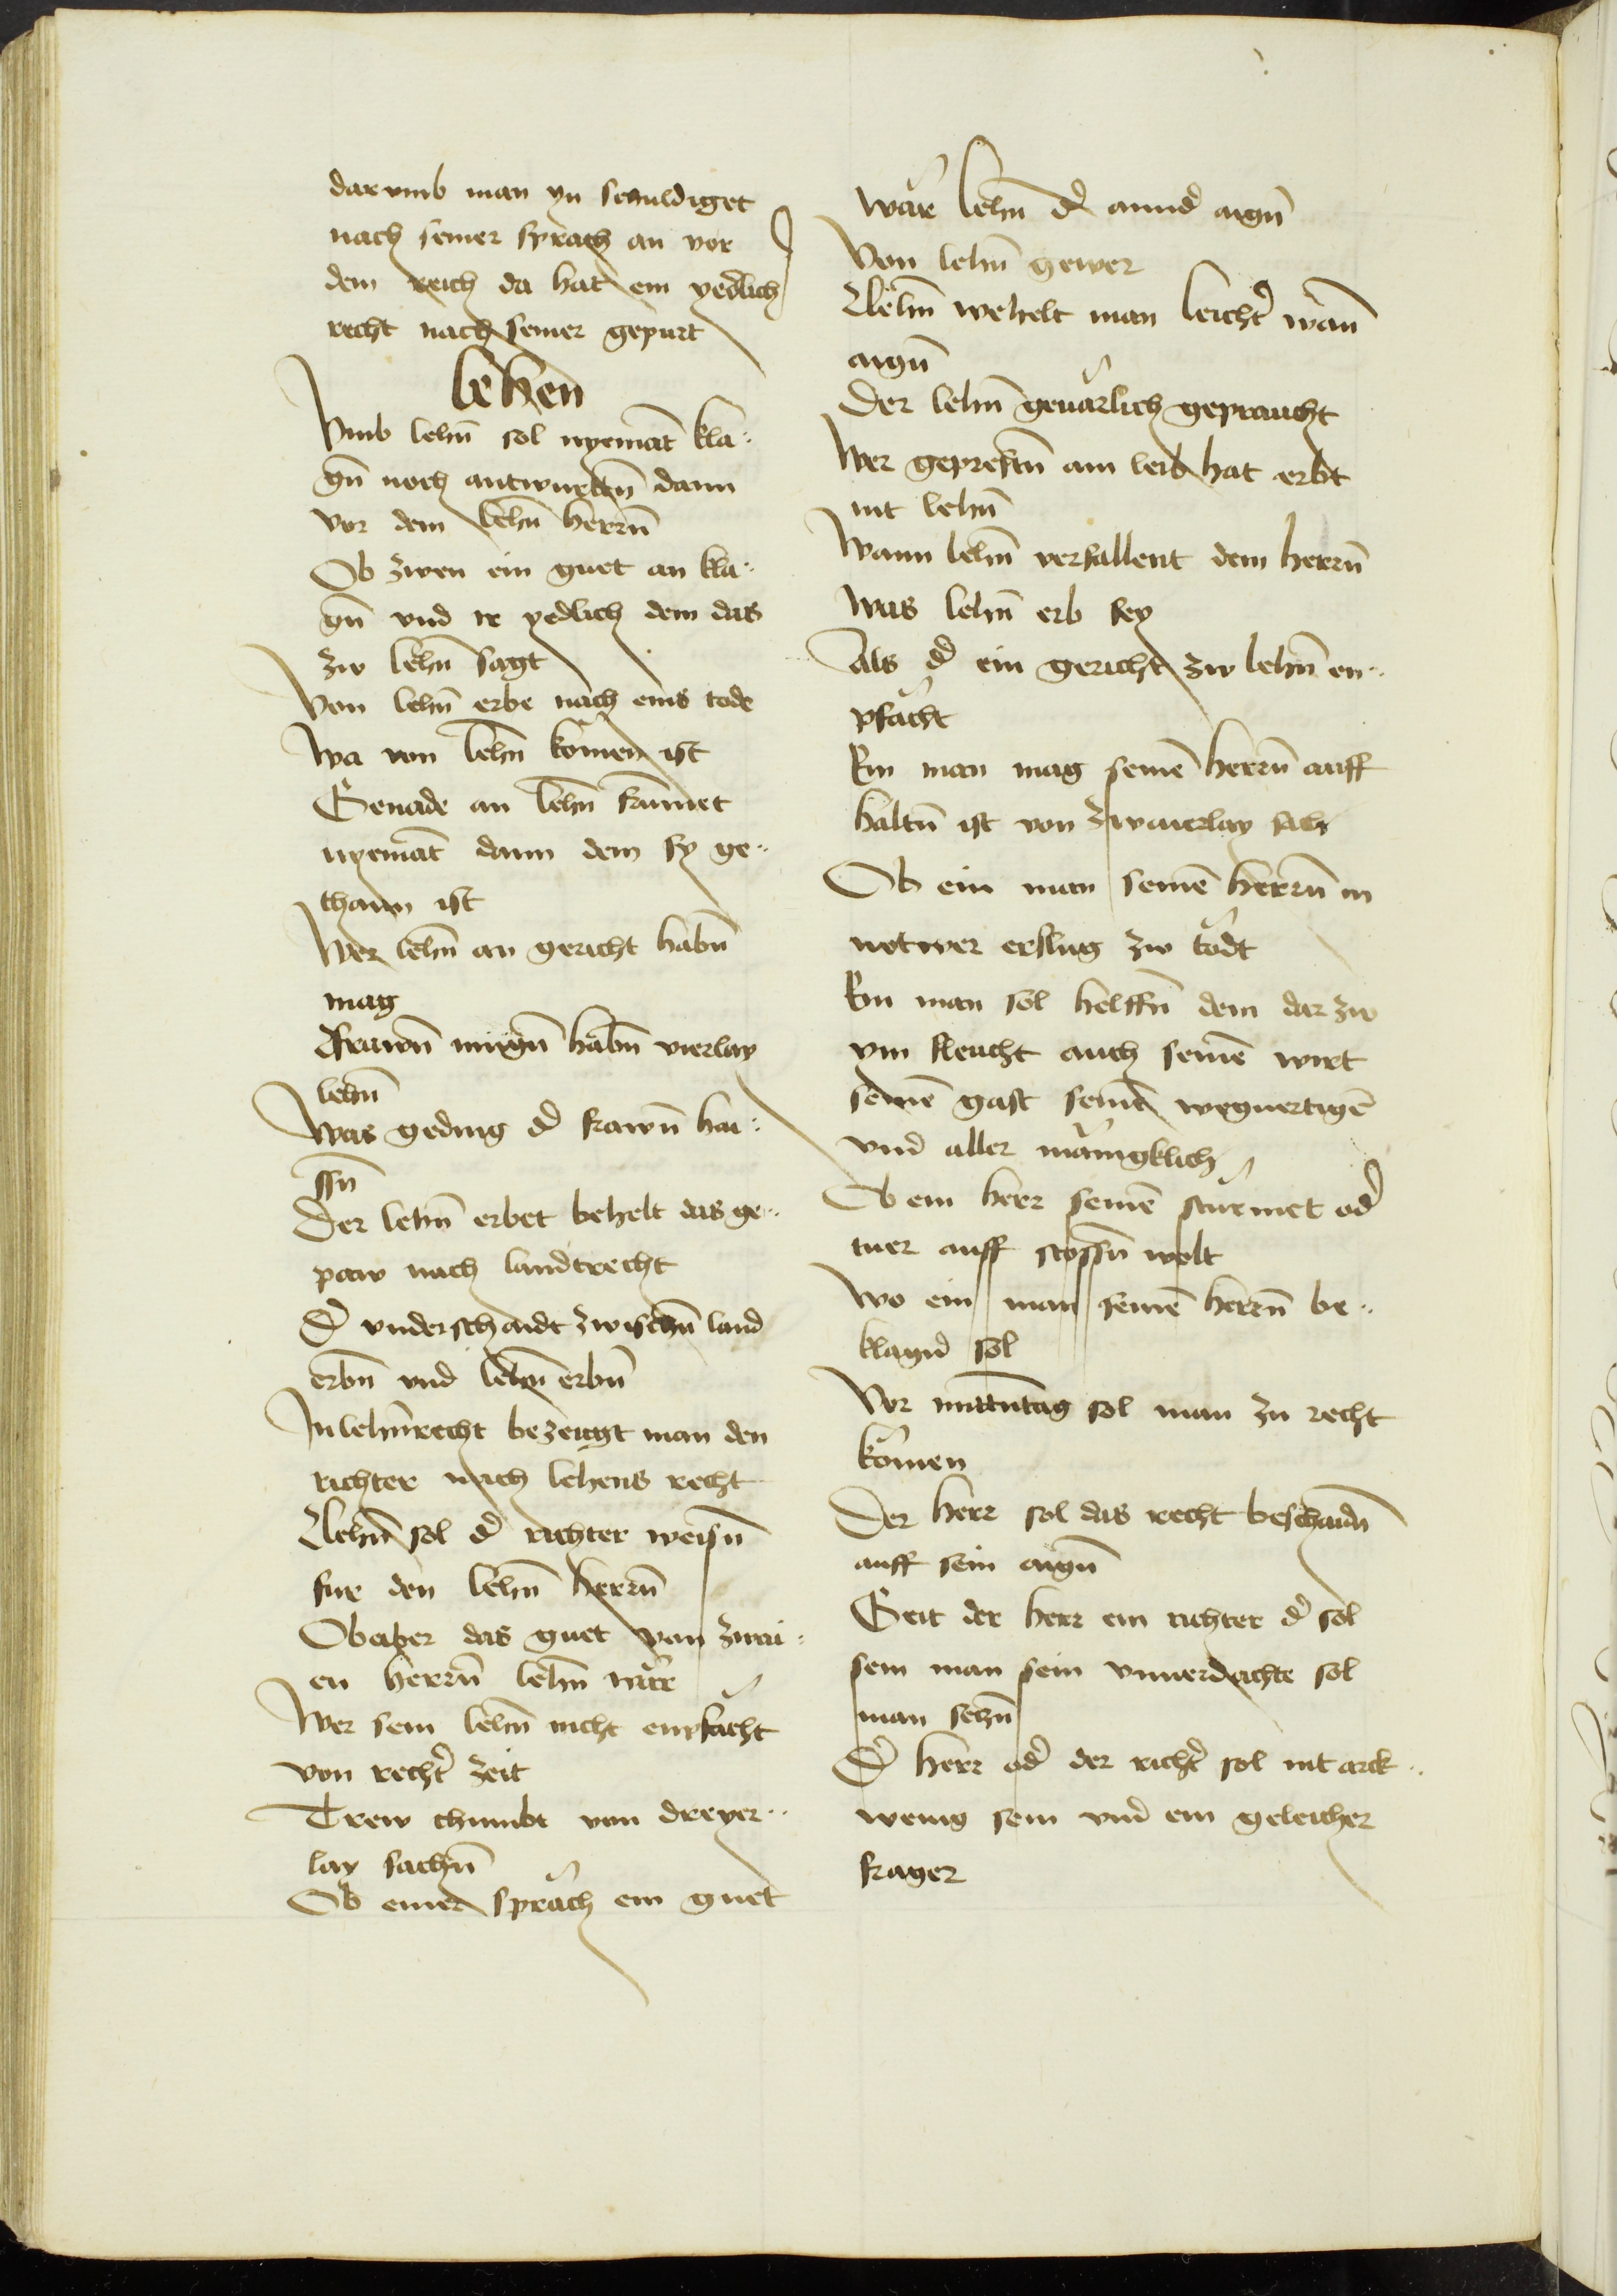 dar vmb man yn schuldiget
nach seiner sprach an vor
dem reich da hat ein yedlich
recht nach seiner gepurt
lehen
Vmb lehn̄ sol nyemāt kla¬
gn̄ noch antwurttn̄ dann
vor dem lehn̄ herrn̄
Ob zwen ein guet an kla¬
gn̄ vnd ir yedlich dem das
zw lehn̄ sagt
Von lehn̄ erbe nach eins tode
Wa von lehn̄ komen ist
Genade an lehn̄ kumet
nyemāt dann dem sy ge¬
thann ist
Wer lehn̄ an gericht habn̄
mag
Frawn̄ mügn̄ habn̄ vierlay
lehn̄
Was geding d̓ frawn̄ hai¬
ssn̄
Der lehn̄ erbet behelt das ge¬
paw nach landtrecht
D̓ vnderschaidt zwischn̄ land
erbn̄ vnd lehn̄ erbn̄
In lehn̄recht bezeugt man den
richter nach lehens recht
Lehn̄ sol d̓ richter weisn̄
fur den lehn̄ herrn̄
Ob aber das guet von zwai¬
en herrn̄ lehn̄ wär
Wer sein lehn̄ nicht enpfächt
von recht̓ zeit
Trew chumbt von dreyer¬
lay sachn̄
Ob einer spräch ein guet
wär lehn̄ d̓ annd̓ aign̄
Von lehn̄ gewer
Lehn̄ wehelt man leicht̓ wann̄
aign̄
Der lehn̄ geuärlich gepraucht
Wer geprestn̄ am leib hat erbt
nit lehn̄
Wann lehn̄ verfallent dem herrn̄
Was lehn̄ erb sey
Als d̓ ein gericht zw lehn̄ en¬
pfächt
Ein man mag seinē herrn̄ auff
haltn̄ ist von zwaierlay sach
Ob ein man seinē herrn̄ in
notwer erslug zw tödt
Ein man sol helffn̄ dem dar zw
ym fleucht auch seinē wirt
seinē gast seinē weguertigē
vnd aller mänigklich
Ob ein herr seinē turmet od̓
tuer auff stossn̄ wolt
Wo ein man seinē herrn̄ be¬
klagn̄ sol
Vor mittntag sol man zu recht
kömen
Der herr sol das recht beschaidn̄
auff sein aign̄
Geit der herr ein richter d̓ sol
sein man sein vnuerdachte sol
man sehn̄
D̓ herr od̓ der richt̓ sol nit arck¬
wenig sein vnd ein geleicher
frager